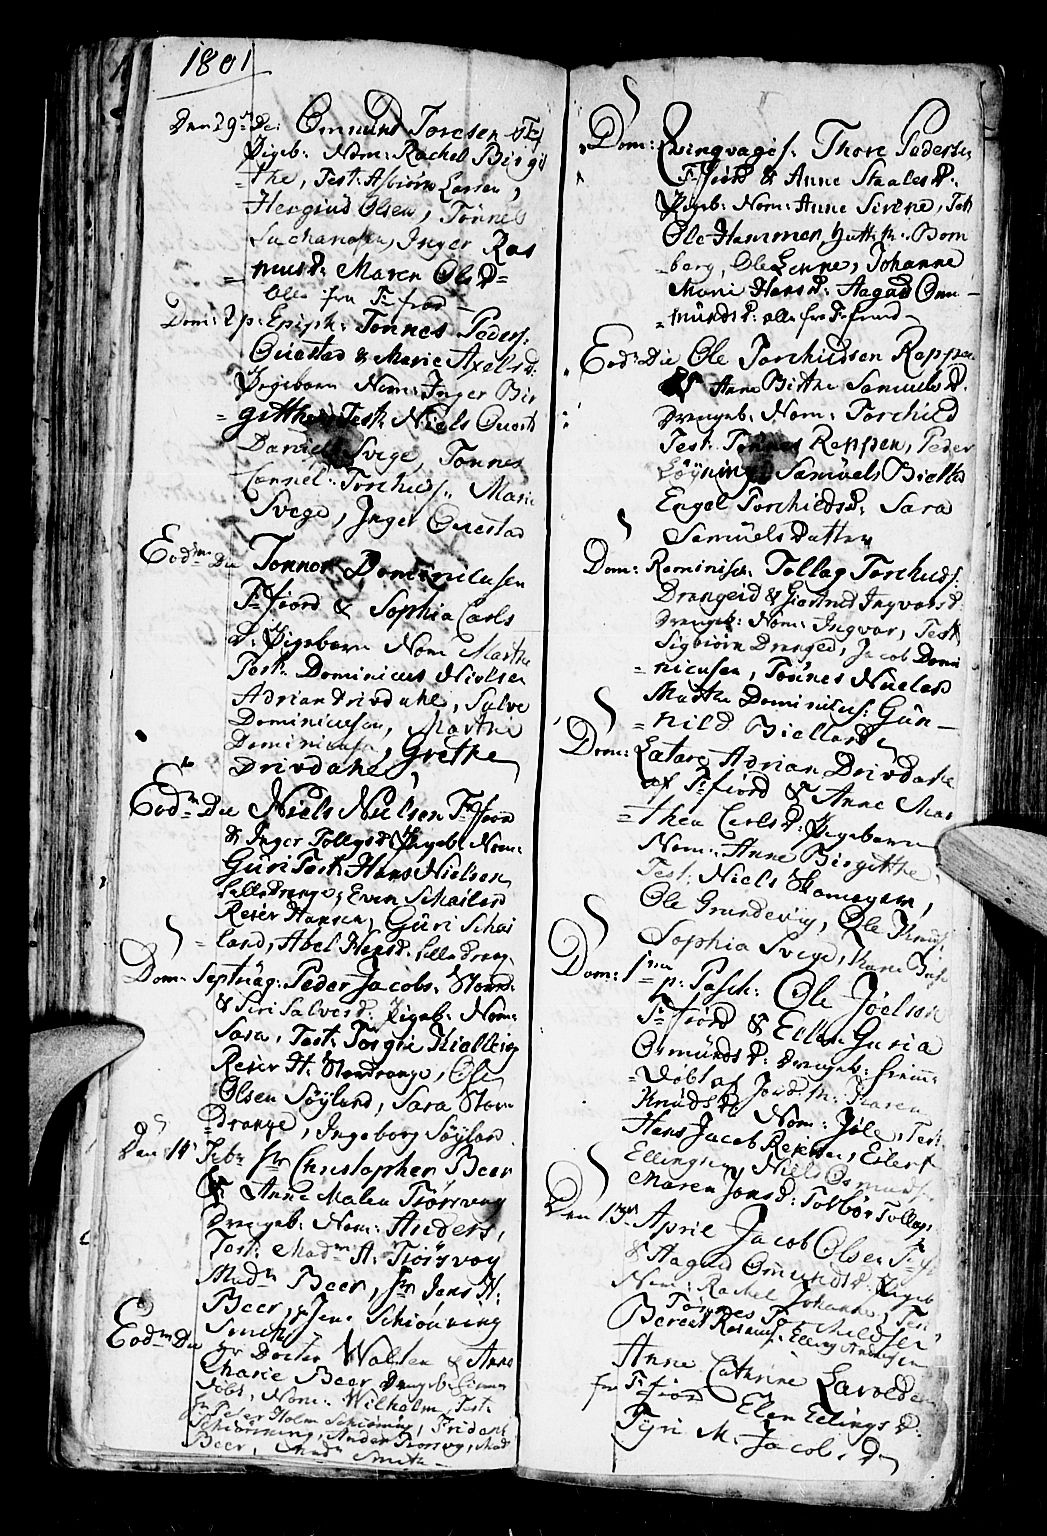 1801
Den 29de Dec: Omund Toresen
Pigeb: Nom: Rachel Birgi
=the, Test: Asbiørn Larsen,
Olsen, Tønnes
Sachariasen, Inger Ras
=musd: Maren Olsd=
Ole fra F:fiord
Dom: 2 p: Epiph: Tønnes Peders:
Questad & Marie Axelsd:
Pigebarn Nom: Inger Bir
=gitthe, Test: Niels Quest
Daniel Svege, Tønnes
Cornel: Torchils: Marie
Svege, Inger Questad
Eodm Die Tønnes Dominicusen
F:fiord & Sophia Carls
d: Pigebarn Nom: Marthe
Test: Dominicus Nielsen
Adrian Drivdahl, Salve
Dominicusen, Marthe
Dominicus, Grethe
Drivdahl,
Eodm Die Niels Nielsen F:fiord
& Inger Tollegsd: Pigeb: Nom:
Guri Test: Hans Nielsen
LilleDrange, Even Schailand
Reier Hansen, Guri Schai
=land, Abel Hansd: LilleDrang
Dom: Septuag: Peder Jacobs: Stord:
& Siri Salvesd: Pigeb: Nom:
Sara, Test: Torgie Kialleig
Reier H: StorDrange, Ole
Olsen Søyland, Sara Stor
=Drange, Ingeborg Søyland.
Den 14 Febr Sr Christopher Beer
& Anne Malen Tiørsvaag
Drengeb: Nom: Anders,
Test: Madm A: Tiørsvog
Madm Beer, Sr Jens H:
Beer, Jens Schiønning
Smith
Eodm Die Hr Docter Walten & Anne
Marie Beer Drengeb: hiemme
døbt, Nom: Wilhelm, Test:
Sr Peter Holm Schiønning, Friderik
Schiønning, Ander Tiorsvog, Mad
Beer, Madm Smith
Dom: Qvinqvages: Thore Pedersen
F:fiord & Anne Staalesd:
Pigeb: Nom: Anne Sirene, Test
Ole Hammer, Bom
=berg, Ole Lenne, Johanne
Marie Hansd: Aagad Om
=mundsd: alle fra F:fiord
Eodm Die Ole Torchildsen Reppen
& Anne Birthe Samuelsd:
Drengeb: Nom: Torchild
Test: Tønnes Reppen, Peder
Løyning Samuels Bielke
Engel Torchildsd: Sara
Samuels Datter
Dom: Reminisc: Tollag Torchilds:
Drangeid & Giertrud Ingvarsd:
Drengeb: Nom: Ingvar, Test
Sigbiørn Dranged, Jacob Domi
=nicusen, Tønnes
Marthe Dominicus: Gun=
=hild Bielland
Dom: Lætare Adrian Drivdahl
af F:fiord & Anne Mar
=thea Carlsd: Pigebarn
Nom: Anne Birgitthe
Test: Niels Skomager,
Ole Grundevig, Ole Knuds:
Sophia Svege,
Dom: 1ma p: Pasch: Ole Jøelsen
F:fiord & Ellen Guria
Osmundsd: Drengeb: hiem:
=døbt af Jord: M: Karen
Knudsd Nom: Jøle, Test:
Hans Jacob Reiersen, Eilert
Ellingsen, Niels Osmunds:
Maren Jonsd: Tolbør Tollags:
Den 13de April Jacob Olsen F:fi
& Aagaad Omundsd: Pigeb
Nom: Rachel Johanne, Test:
Tønnes Torchildsen
Berent Rasmus: Elling Andersen
Anne Cathrine
fra F:fiord Elen Ellingsd:
Tyri M. Jacobsd